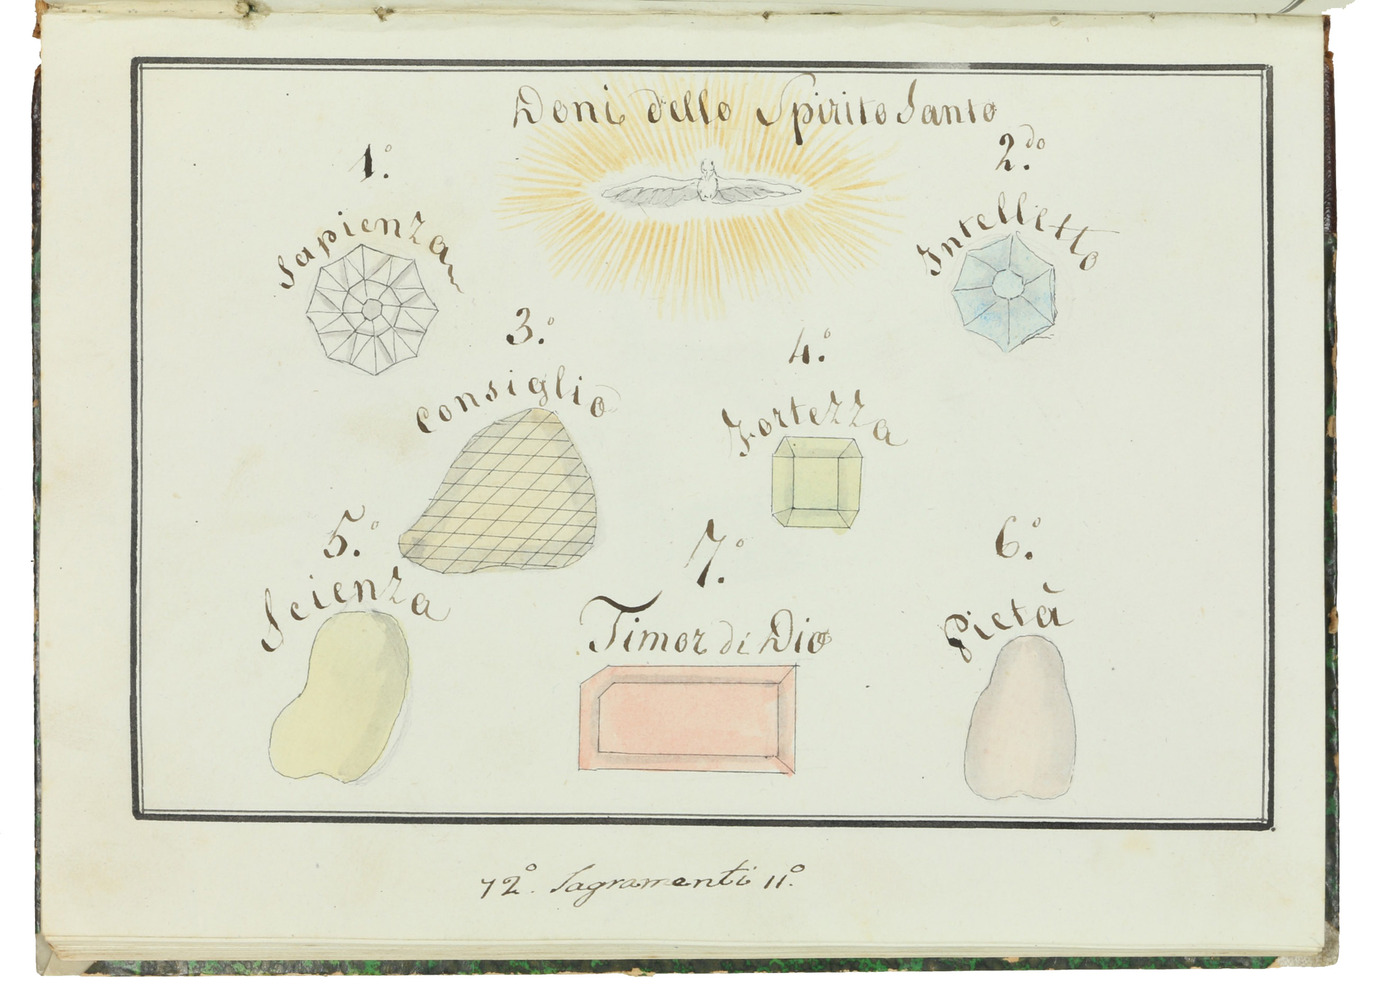 Doni dello Spirito Santo
1.°
Sapienza
2.do
Intelletto
3.°
Consiglio
4.°
Fortezza
5.°
Scienza
6.°
Pietà
7.°
Timor di Dio
72°. Sagramenti 11.°